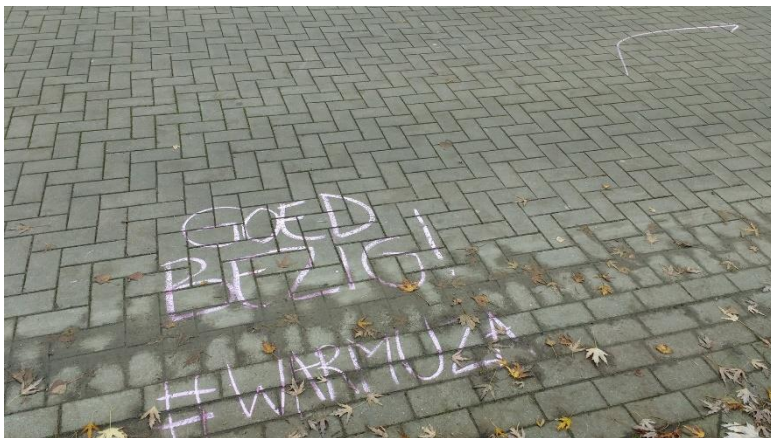 GOED
BEZIG!
#WARMUZA